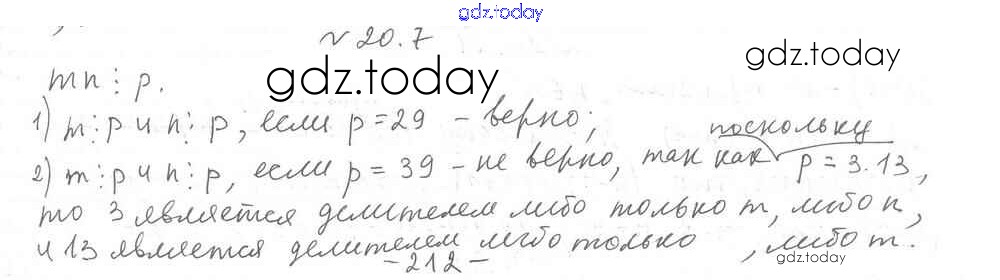 gdz.today
№ 20.7
mn ⋮ p. gdz.today gdz.today
1) m ⋮ p и n ⋮ p, если p = 29 – верно;
поскольку
2) m ⋮ p и n ⋮ p, если p = 39 – не верно, так как p = 3·13,
то 3 является делителем либо только m, либо n,
и 13 является делителем либо только , либо m.
– 212 –